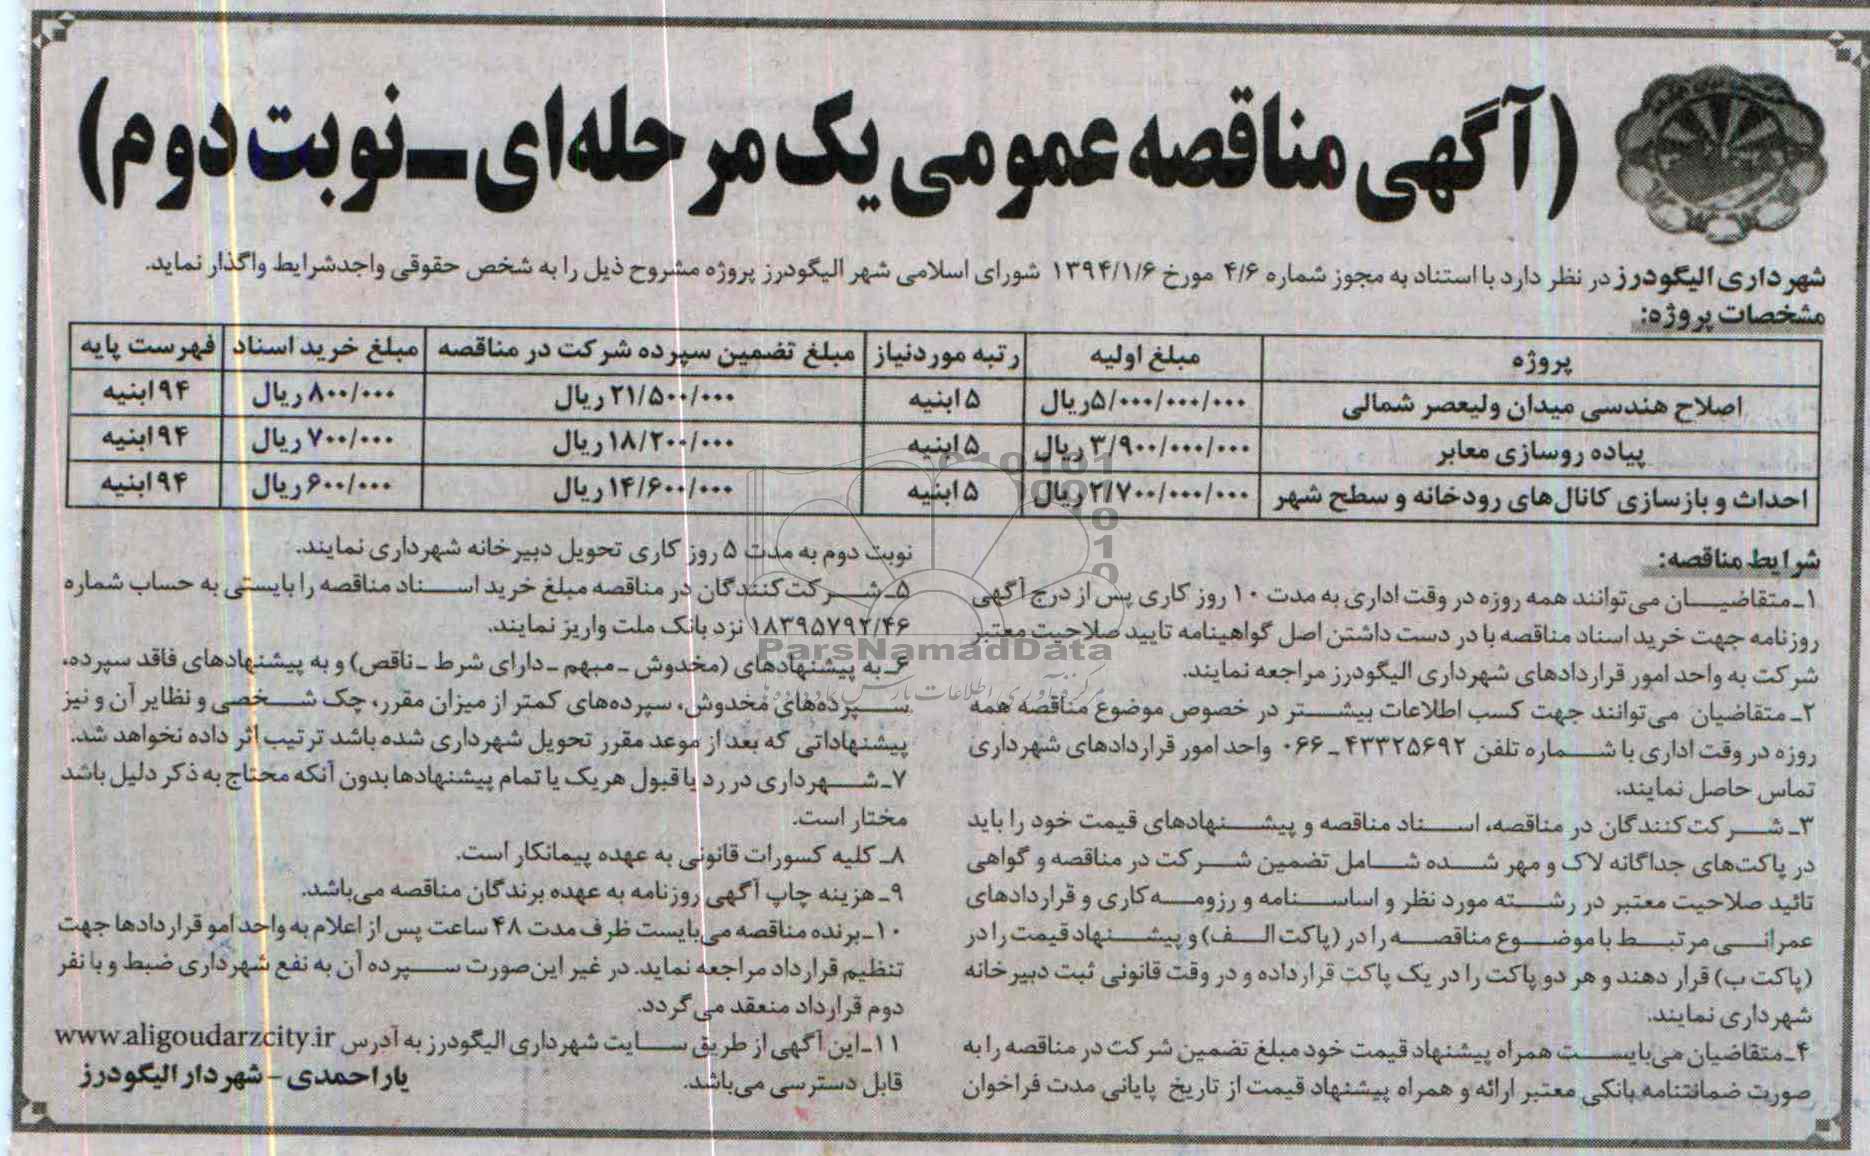 (آگهی مناقصه عمومی یک مرحله‌ای ـ نوبت دوم)
شهرداری الیگودرز در نظر دارد با استناد به مجوز شماره ۴/۶ مورخ ۱۳۹۴/۱/۶ شورای اسلامی شهر الیگودرز پروژه مشروح ذیل را به شخص حقوقی واجدشرایط واگذار نماید.
مشخصات پروژه:
پروژه مبلغ اولیه رتبه موردنیاز مبلغ تضمین سپرده شرکت در مناقصه مبلغ خرید اسناد فهرست پایه
اصلاح هندسی میدان ولیعصر شمالی ۵/۰۰۰/۰۰۰/۰۰۰ریال ۵ ابنیه ۲۱/۵۰۰/۰۰۰ ریال ۸۰۰/۰۰۰ ریال ۹۴ ابنیه
پیاده روسازی معابر ۳/۹۰۰/۰۰۰/۰۰۰ ریال ۵ ابنیه ۱۸/۲۰۰/۰۰۰ ریال ۷۰۰/۰۰۰ ریال ۹۴ ابنیه
احداث و بازسازی کانال‌های رودخانه و سطح شهر ۲/۷۰۰/۰۰۰/۰۰۰ ریال ۵ ابنیه ۱۴/۶۰۰/۰۰۰ ریال ۶۰۰/۰۰۰ ریال ۹۴ ابنیه
شرایط مناقصه:
۱ـ متقاضیـان می‌توانند همه روزه در وقت اداری به مدت ۱۰ روز کاری پس از درج آگهی
روزنامه جهت خرید اسناد مناقصه با در دست داشتن اصل گواهینامه تایید صلاحیت معتبر
شرکت به واحد امور قراردادهای شهرداری الیگودرز مراجعه نمایند.
۲ـ متقاضیان می‌توانند جهت کسب اطلاعات بیشتر در خصوص موضوع مناقصه همه
روزه در وقت اداری با شماره تلفن ۴۳۳۲۵۶۹۲ ـ ۰۶۶ واحد امور قراردادهای شهرداری
تماس حاصل نمایند.
۳ـ شرکت‌کنندگان در مناقصه، اسناد مناقصه و پیشنهادهای قیمت خود را باید
در پاکت‌های جداگانه لاک و مهر شده شامل تضمین شرکت در مناقصه و گواهی
تائید صلاحیت معتبر در رشته مورد نظر و اساسنامه و رزومه کاری و قراردادهای
عمرانی مرتبط با موضوع مناقصه را در (پاکت الف) و پیشنهاد قیمت را در
(پاکت ب) قرار دهند و هر دو پاکت را در یک پاکت قرارداده و در وقت قانونی ثبت دبیرخانه
شهرداری نمایند.
۴ـ متقاضیان می‌بایست همراه پیشنهاد قیمت خود مبلغ تضمین شرکت در مناقصه را به
صورت ضمانتنامه بانکی معتبر ارائه و همراه پیشنهاد قیمت از تاریخ پایانی مدت فراخوان
نوبت دوم به مدت ۵ روز کاری تحویل دبیرخانه شهرداری نمایند.
۵ـ شرکت‌کنندگان در مناقصه مبلغ خرید اسناد مناقصه را بایستی به حساب شماره
۱۸۳۹۵۷۹۲/۴۶ نزد بانک ملت واریز نمایند.
۶ـ به پیشنهادهای (مخدوش ـ مبهم ـ دارای شرط ـ ناقص) و به پیشنهادهای فاقد سپرده،
سپرده‌های مخدوش، سپرده‌های کمتر از میزان مقرر، چک شخصی و نظایر آن و نیز
پیشنهاداتی که بعد از موعد مقرر تحویل شهرداری شده باشد ترتیب اثر داده نخواهد شد.
۷ـ شهرداری در رد یا قبول هریک یا تمام پیشنهادها بدون آنکه محتاج به ذکر دلیل باشد
مختار است.
۸ـ کلیه کسورات قانونی به عهده پیمانکار است.
۹ـ هزینه چاپ آگهی روزنامه به عهده برندگان مناقصه می‌باشد.
۱۰ـ برنده مناقصه می‌بایست ظرف مدت ۴۸ ساعت پس از اعلام به واحد امو قراردادها جهت
تنظیم قرارداد مراجعه نماید. در غیر این‌صورت سپرده آن به نفع شهرداری ضبط و با نفر
دوم قرارداد منعقد می‌گردد.
۱۱ـ این آگهی از طریق سایت شهرداری الیگودرز به آدرس www.aligoudarzcity.ir
قابل دسترسی می‌باشد.
یاراحمدی - شهردار الیگودرز
ParsNamadData